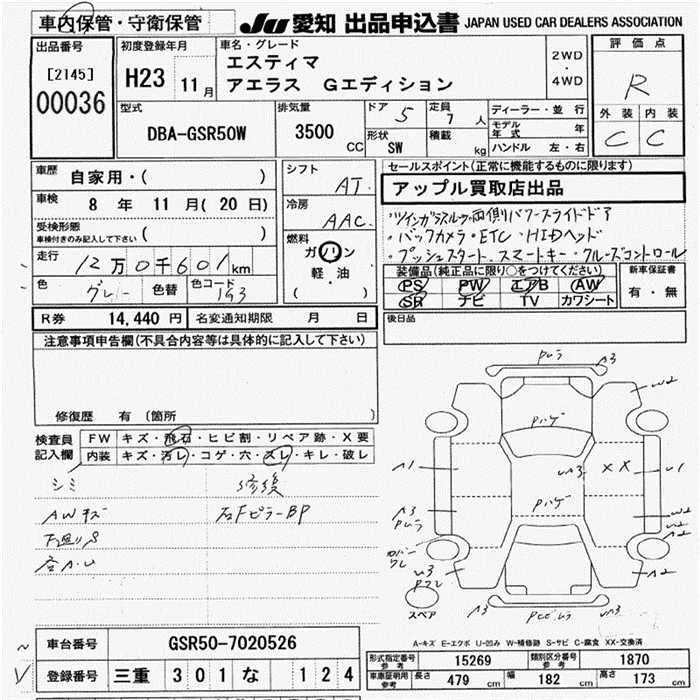 車内保管・守衛保管
JU 愛知 出品申込書 JAPAN USED CAR DEALERS ASSOCIATION
出品番号
[2145]
00036
初度登録年月
H23 11月
車名・グレード
エスティマ
アエラス Gエディション
2WD
・
4WD
評価点
R
外装 内装
C C
型式
DBA-GSR50W
排気量
3500 CC
ドア 5
定員 7 人
形状 SW
積載 kg
ディーラー・並行
モデル年式 年
ハンドル 左・右
車歴 自家用・( )
車検 8 年 11 月( 20 日)
受検形態
車検付きのみ記入して下さい ( )
走行 12万0千601km
色 グレー 色替 色コード 1G3
シフト AT.
冷房 AAC.
燃料
ガソリン
軽・油
( )
セールスポイント(正常に機能するものに限ります)
アップル買取店出品
・ツインガラスルーフ・両側パワースライドドア
・バックカメラ・ETC・HIDヘッド
・プッシュスタート・スマートキー・クルーズコントロール
装備品(純正品に限り○をつけてください)
PS PW エアB AW
SR ナビ TV カワシート
新車保証書
有・無
R券 14,440 円 名変通知期限 月 日
後日品
注意事項申告欄(不具合内容等は具体的に記入して下さい)
修復歴 有 (箇所 )
検査員記入欄
FW キズ・飛石・ヒビ割・リペア跡・X要
内装 キズ・汚レ・コゲ・穴・スレ・キレ・破レ
シミ 修復
AWキズ 右Fピラー BP
下廻りS
A3
W2
Pハゲ
A1
W3
X X
U1
A3
Pハゲ
W2
A2
U3
A2
スペア
A-キズ E-エクボ U-凹み W-補修跡 S-サビ C-腐食 XX-交換済
車台番号 GSR50-7020526
登録番号 三重 301 な 124
形式指定番号 参考 15269 類別区分番号 参考 1870
車庫証明用 参考 長さ 479 cm 幅 182 cm 高さ 173 cm